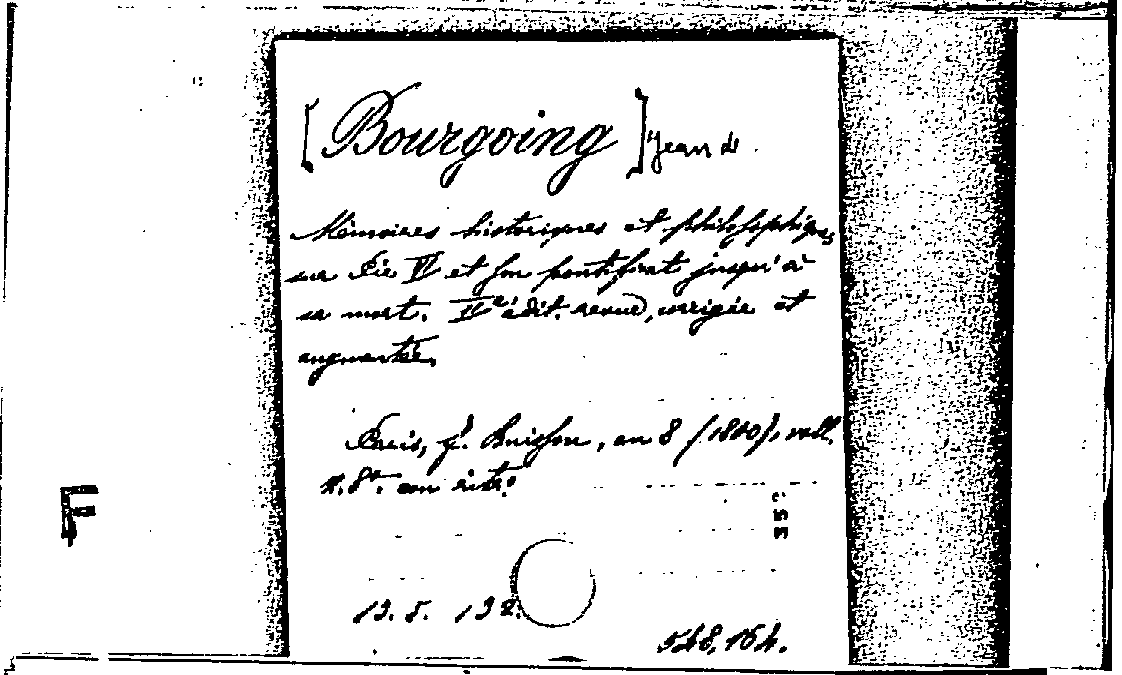 [Bourgoing] Jean de
Mémoires historiques et philosophiques
sur Pie VI et son pontificat jusqu'à
sa mort. IIe édit. revue, corrigée et
augmentée.
Paris, F. Buisson, an 8 (1800), voll.
2. 8º. con ritr.
F
35C
13. 5. 132.
548,164.